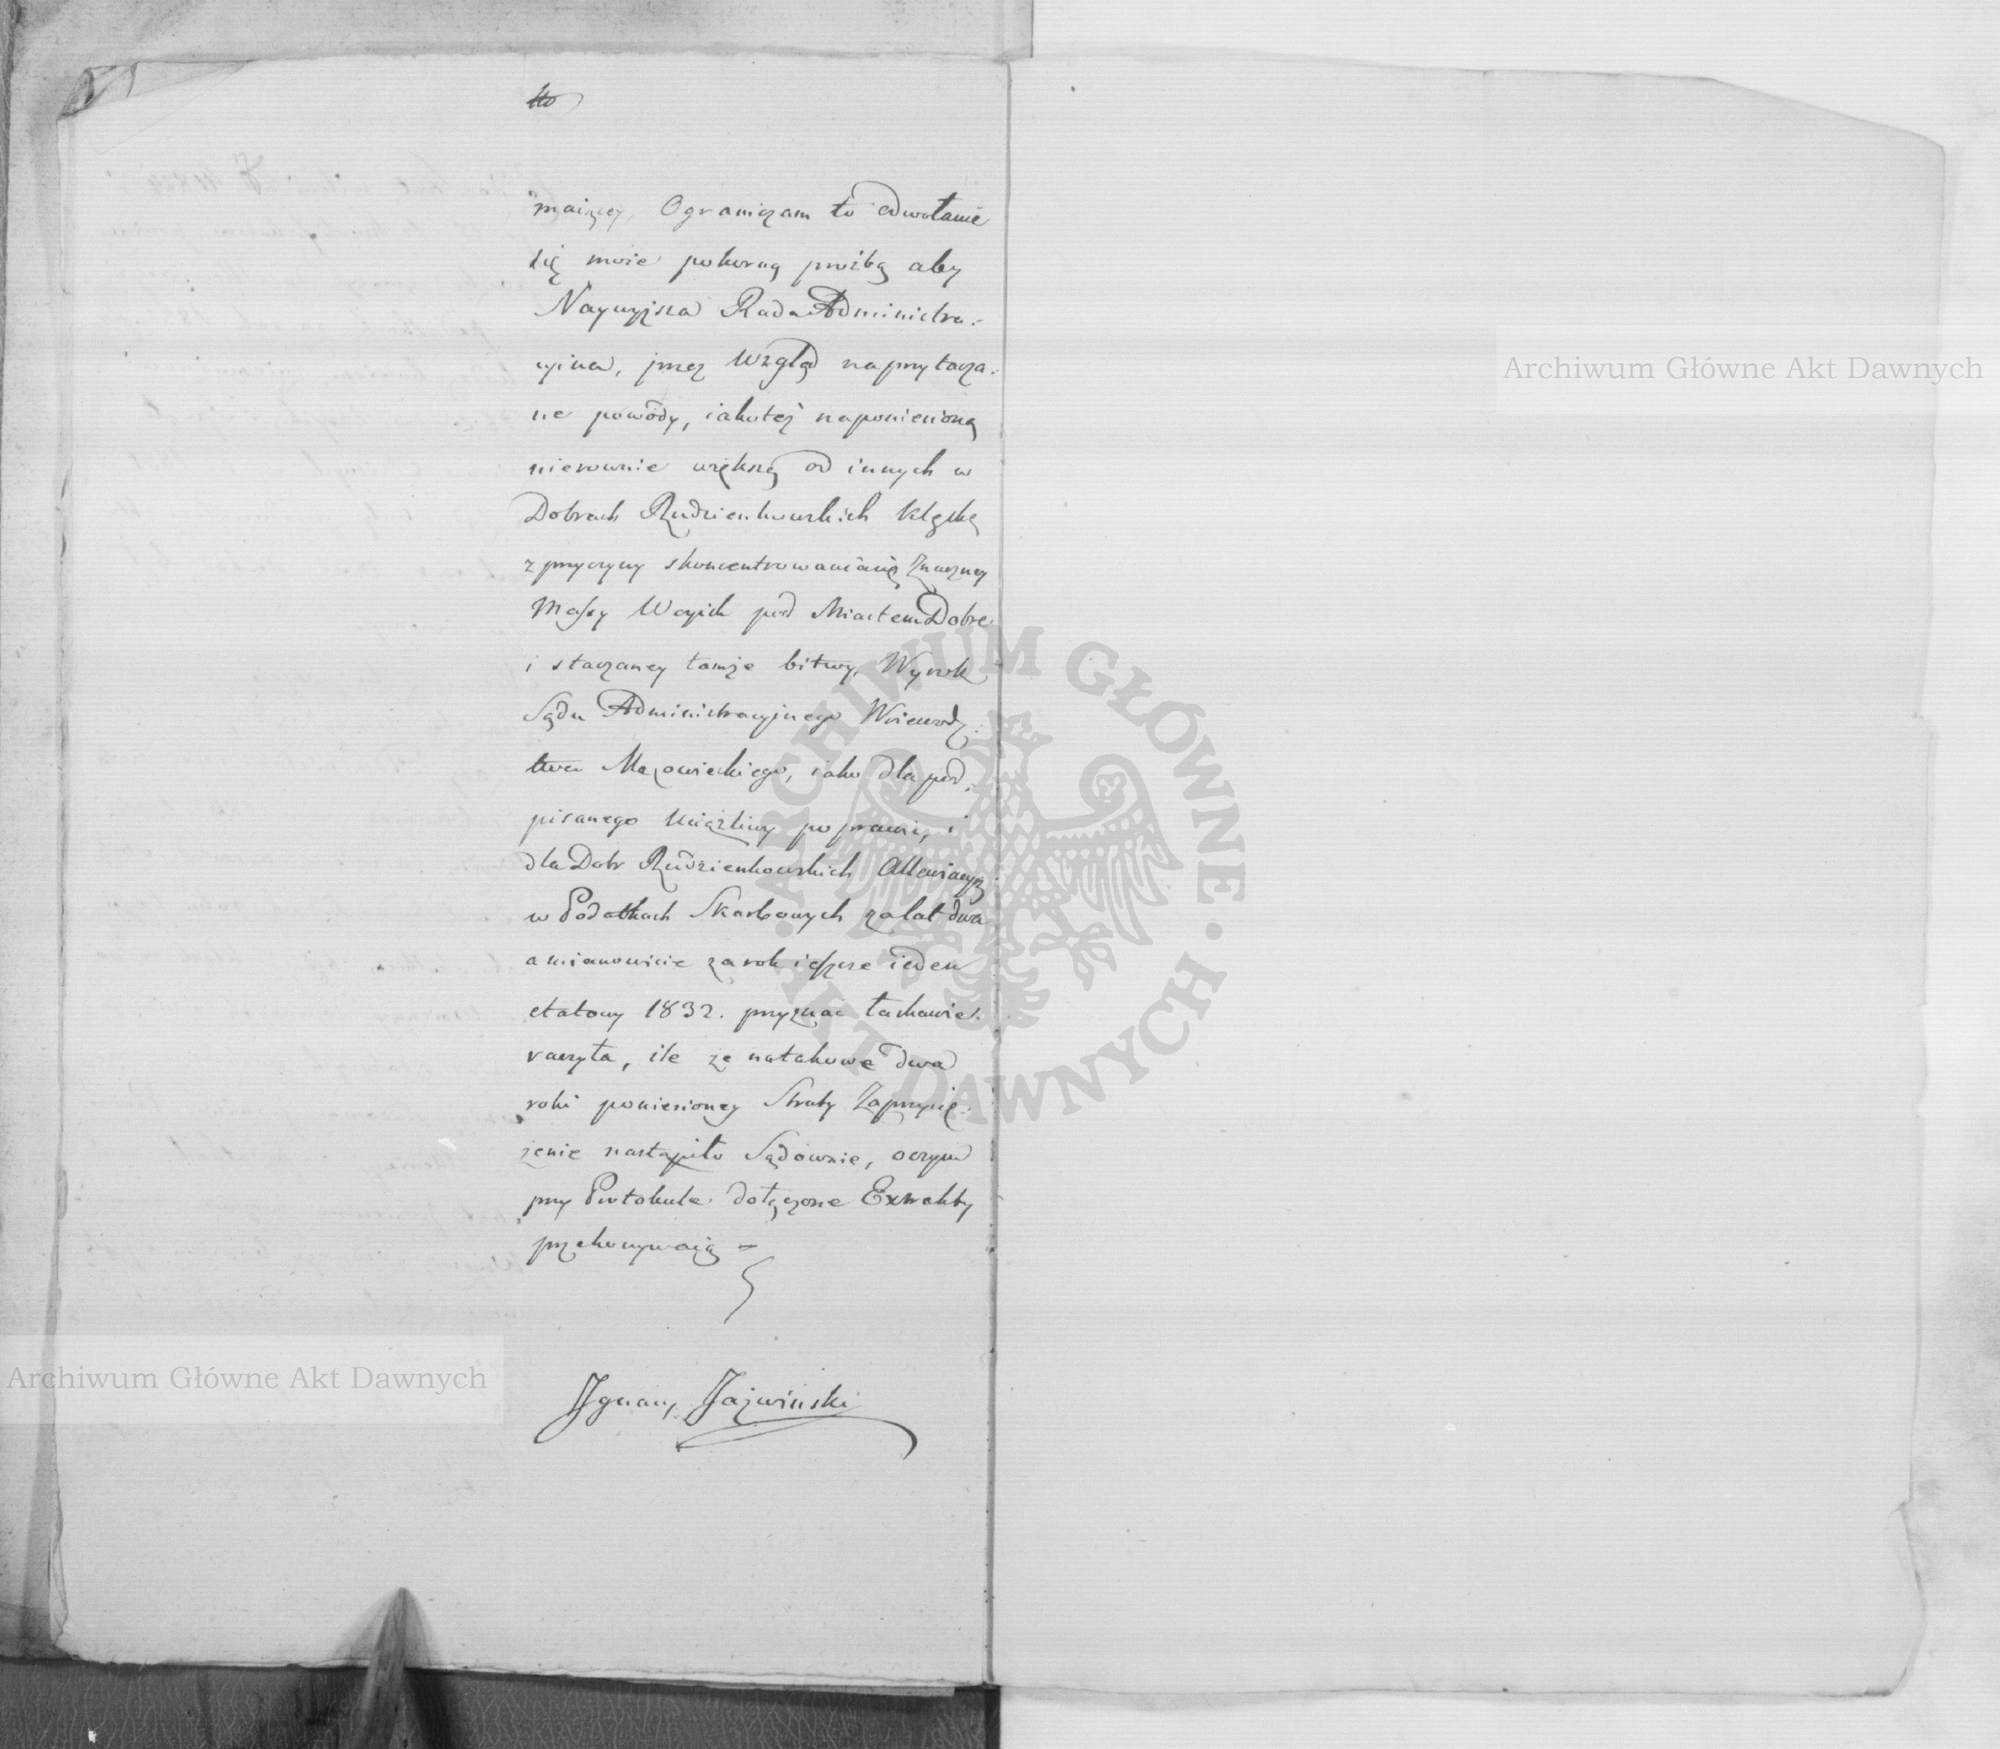 maiącey, Ograniczam to odwołanie
się moie pokorną proźbą aby
Naywyższa Rada Administra-
cyina, przez Wzgląd na przytacza-
ne powody, iakoteż na poniesioną
nierownie większą od innych w
Dobrach Rudzienkowskich klęskę
z przyczyny skoncentrowania się Znaczney
Massy Woysk pod Miastem Dobre
i staczaney tamże bitwy, Wyrok
Sądu Administracyjnego Woiewodz-
twa Mazowieckiego, iako dla pod-
pisanego Uciążliwy poprawić, i
dla Dobr Rudzienkowskich Allewiacyą
w Podatkach Skarbowych za lat dwa
a mianowicie za rok ieszcze ieden
etatowy 1832. przyznać łaskawie
raczyła, ile że na takowe dwa
roki poniesioney Straty Zaprzysię-
żenie nastąpiło Sądownie, o czym
przy Protokule dołączone Extrakty
przekonywaią =
Ignacy Jaźwiński
Archiwum Główne Akt Dawnych
Archiwum Główne Akt Dawnych
ARCHIWUM GŁÓWNE AKT DAWNYCH